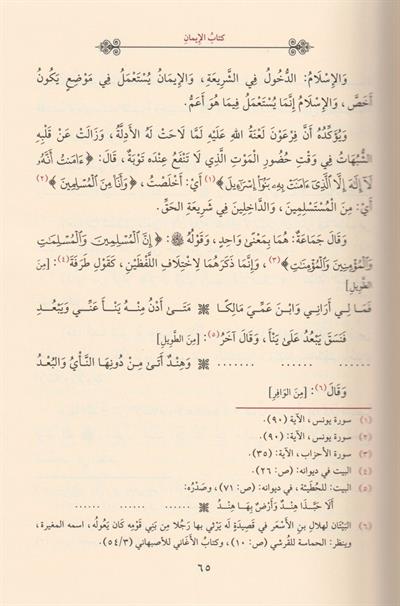 كتابُ الإِيمَانِ
وَالإِسْلَامُ: الدُّخُولُ فِي الشَّرِيعَةِ، وَالإِيمَانُ يُسْتَعْمَلُ فِي مَوْضِعٍ يَكُونُ
أَخَصَّ، وَالإِسْلَامُ إِنَّمَا يُسْتَعْمَلُ فِيمَا هُوَ أَعَمُّ.
وَيُؤَكِّدُهُ أَنَّ فِرْعَوْنَ لَعْنَةُ اللهِ عَلَيْهِ لَمَّا لَاحَتْ لَهُ الأَدِلَّةُ، وَزَالَتْ عَنْ قَلْبِهِ
الشُّبُهَاتُ فِي وَقْتِ حُضُورِ المَوْتِ الَّذِي لَا تَنْفَعُ عِنْدَه تَوْبَةٌ، قَالَ: ﴿ءَامَنتُ أَنَّهُۥ
لَآ إِلَٰهَ إِلَّا ٱلَّذِىٓ ءَامَنَتْ بِهِۦ بَنُوٓاْ إِسْرَٰٓءِيلَ﴾(١) أَيْ: أَخْلَصْتُ، ﴿وَأَنَا۠ مِنَ ٱلْمُسْلِمِينَ﴾(٢)
أَيْ: مِنَ الْمُسْتَسْلِمِينَ، وَالدَّاخِلِينَ فِي شَرِيعَةِ الحَقِّ.
وَقَالَ جَمَاعَةٌ: هُمَا بِمَعْنًى وَاحِدٍ، وَقَوْلُهُ ﷻ: ﴿إِنَّ ٱلْمُسْلِمِينَ وَٱلْمُسْلِمَٰتِ
وَٱلْمُؤْمِنِينَ وَٱلْمُؤْمِنَٰتِ﴾(٣)، وَإِنَّمَا ذَكَرَهُمَا لِاخْتِلَافِ اللَّفْظَيْنِ، كَقَوْلِ طَرَفَةَ(٤): [مِنَ
الطَّوِيلِ]
فَمَا لِي أَرَانِي وَابْنَ عَمِّيَ مَالِكًا مَتَىٰ أَدْنُ مِنْهُ يَنْأَ عَنِّي وَيَبْعُدِ
فَنَسَقَ يَبْعُدُ عَلَىٰ يَنْأَ، وَقَالَ آخَرُ(٥): [مِنَ الطَّوِيلِ]
....... ....... وَهِنْدٌ أَتَىٰ مِنْ دُونِهَا النَّأْيُ وَالبُعْدُ
وَقَالَ(٦): [مِنَ الوَافِرِ]
(١) سورة يونس، الآية (٩٠).
(٢) سورة يونس، الآية: (٩٠).
(٣) سورة الأحزاب، الآية: (٣٥).
(٤) البيت في ديوانه: (ص: ٢٦).
(٥) البيت: للحُطَيْئة، في ديوانه: (ص: ٧١)، وصَدْرُه:
أَلَا حَبَّذَا هِنْدٌ وَأَرْضٌ بِهَا هِنْدُ ....... .......
(٦) البَيْتَان لهلالِ بنِ الأَسْعَر في قَصِيدَةٍ لَه يَرْثِي بها رَجُلًا مِن بَنِي قَوْمِهِ كَان يَعُولُه، اسمه المغيرة،
وينظر: الحماسة للقُرشي (ص: ١٠)، وكتابُ الأَغَاني للأصبهاني (٥٤/٣).
٦٥